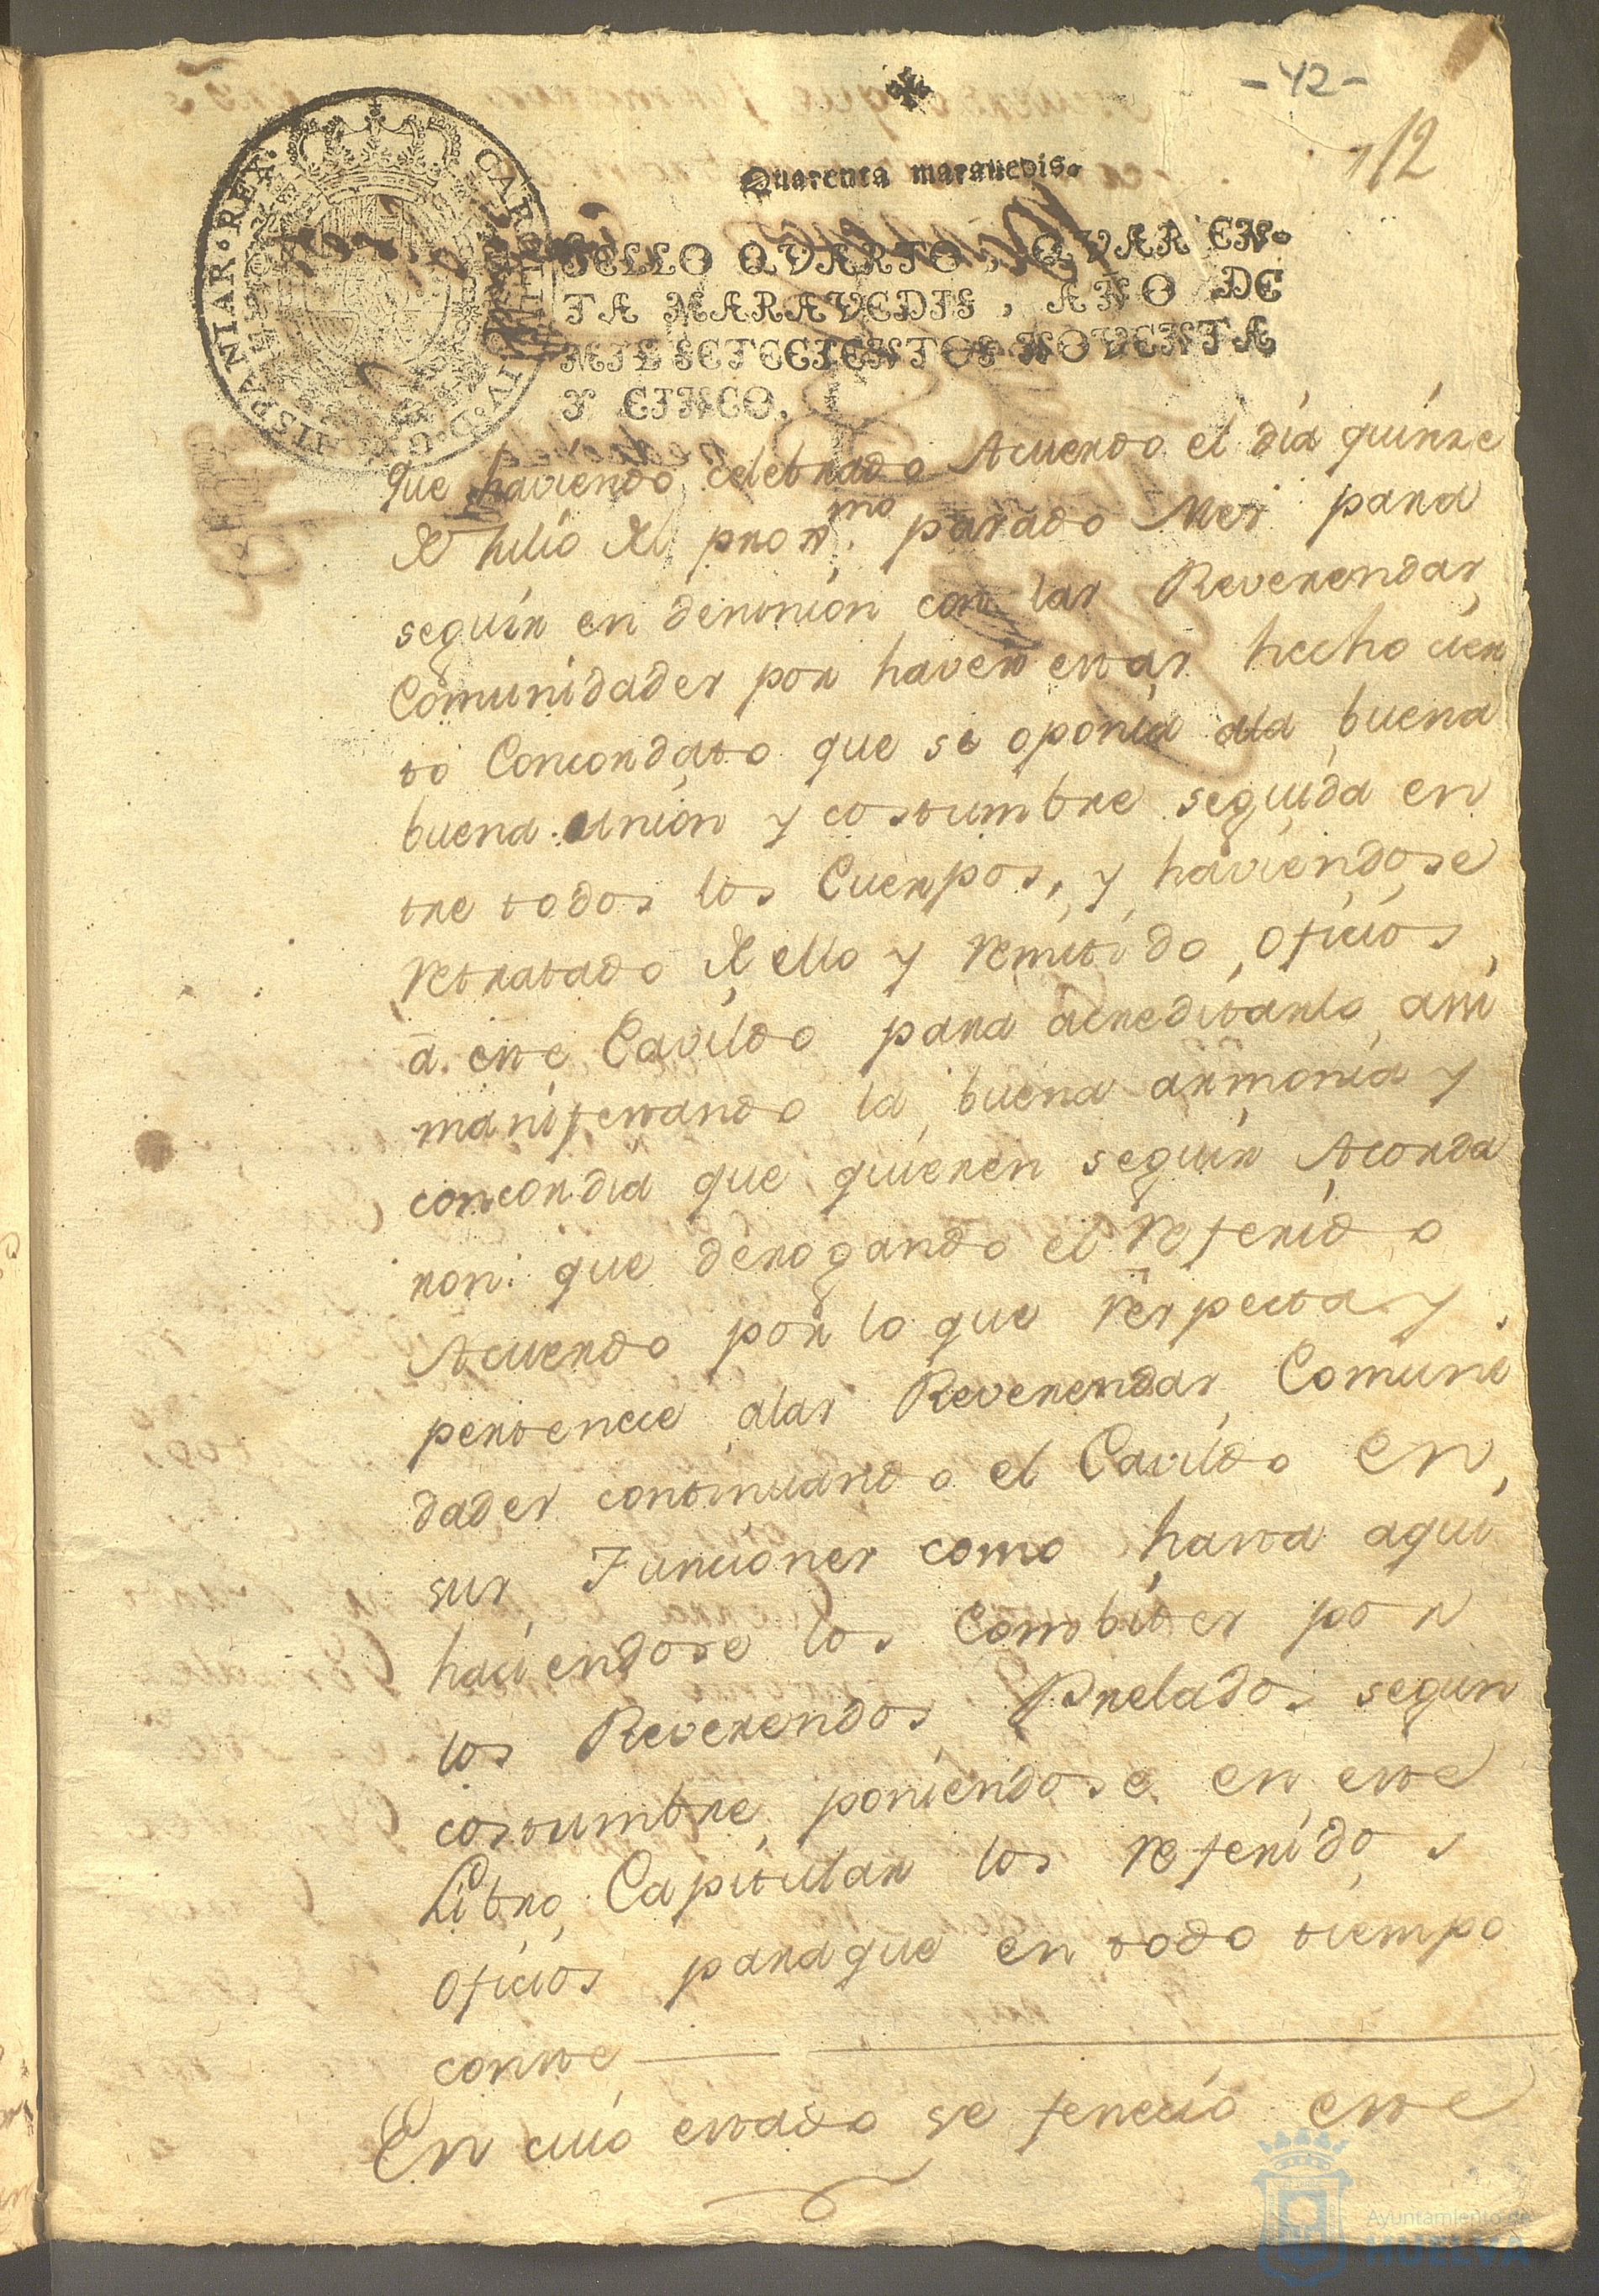 - 42 -
112
Quarenta marauedis.
SELLO QVARTO, QVAREN-
TA MARAVEDIS, AÑO DE
MIL SETECIENTOS NOVENTA
Y CINCO.
HISPANIAR. REX. CAROLUS IV. D. G.
Que haviendo celebrado Acuerdo el dia quinze
de Julio del proxmo. pasado Mes para
seguir en desunion con las Reverendas
Comunidades por haver estas hecho cier
to Concordato que se oponia ala buena
buena union y costumbre seguida en
tre todos los Cuerpos, y haviendose
retratado de ello y remitido oficios
â este Cavildo para acreditarlo, assi
manifestando la buena armonia y
concordia que quieren seguir Acorda
ron: que derogando el referido
Acuerdo por lo que respecta y
pertenece alas Reverendas Comuni
dades continuando el Cavildo en
sus Funciones como hasta aqui
haciendose los Combites por
los Reverendos Prelados segun
costumbre, poniendose en este
Libro Capitular los referidos
oficios paraque en todo tiempo
conste
En cuio estado se fenecio este
Ayuntamiento de
HUELVA